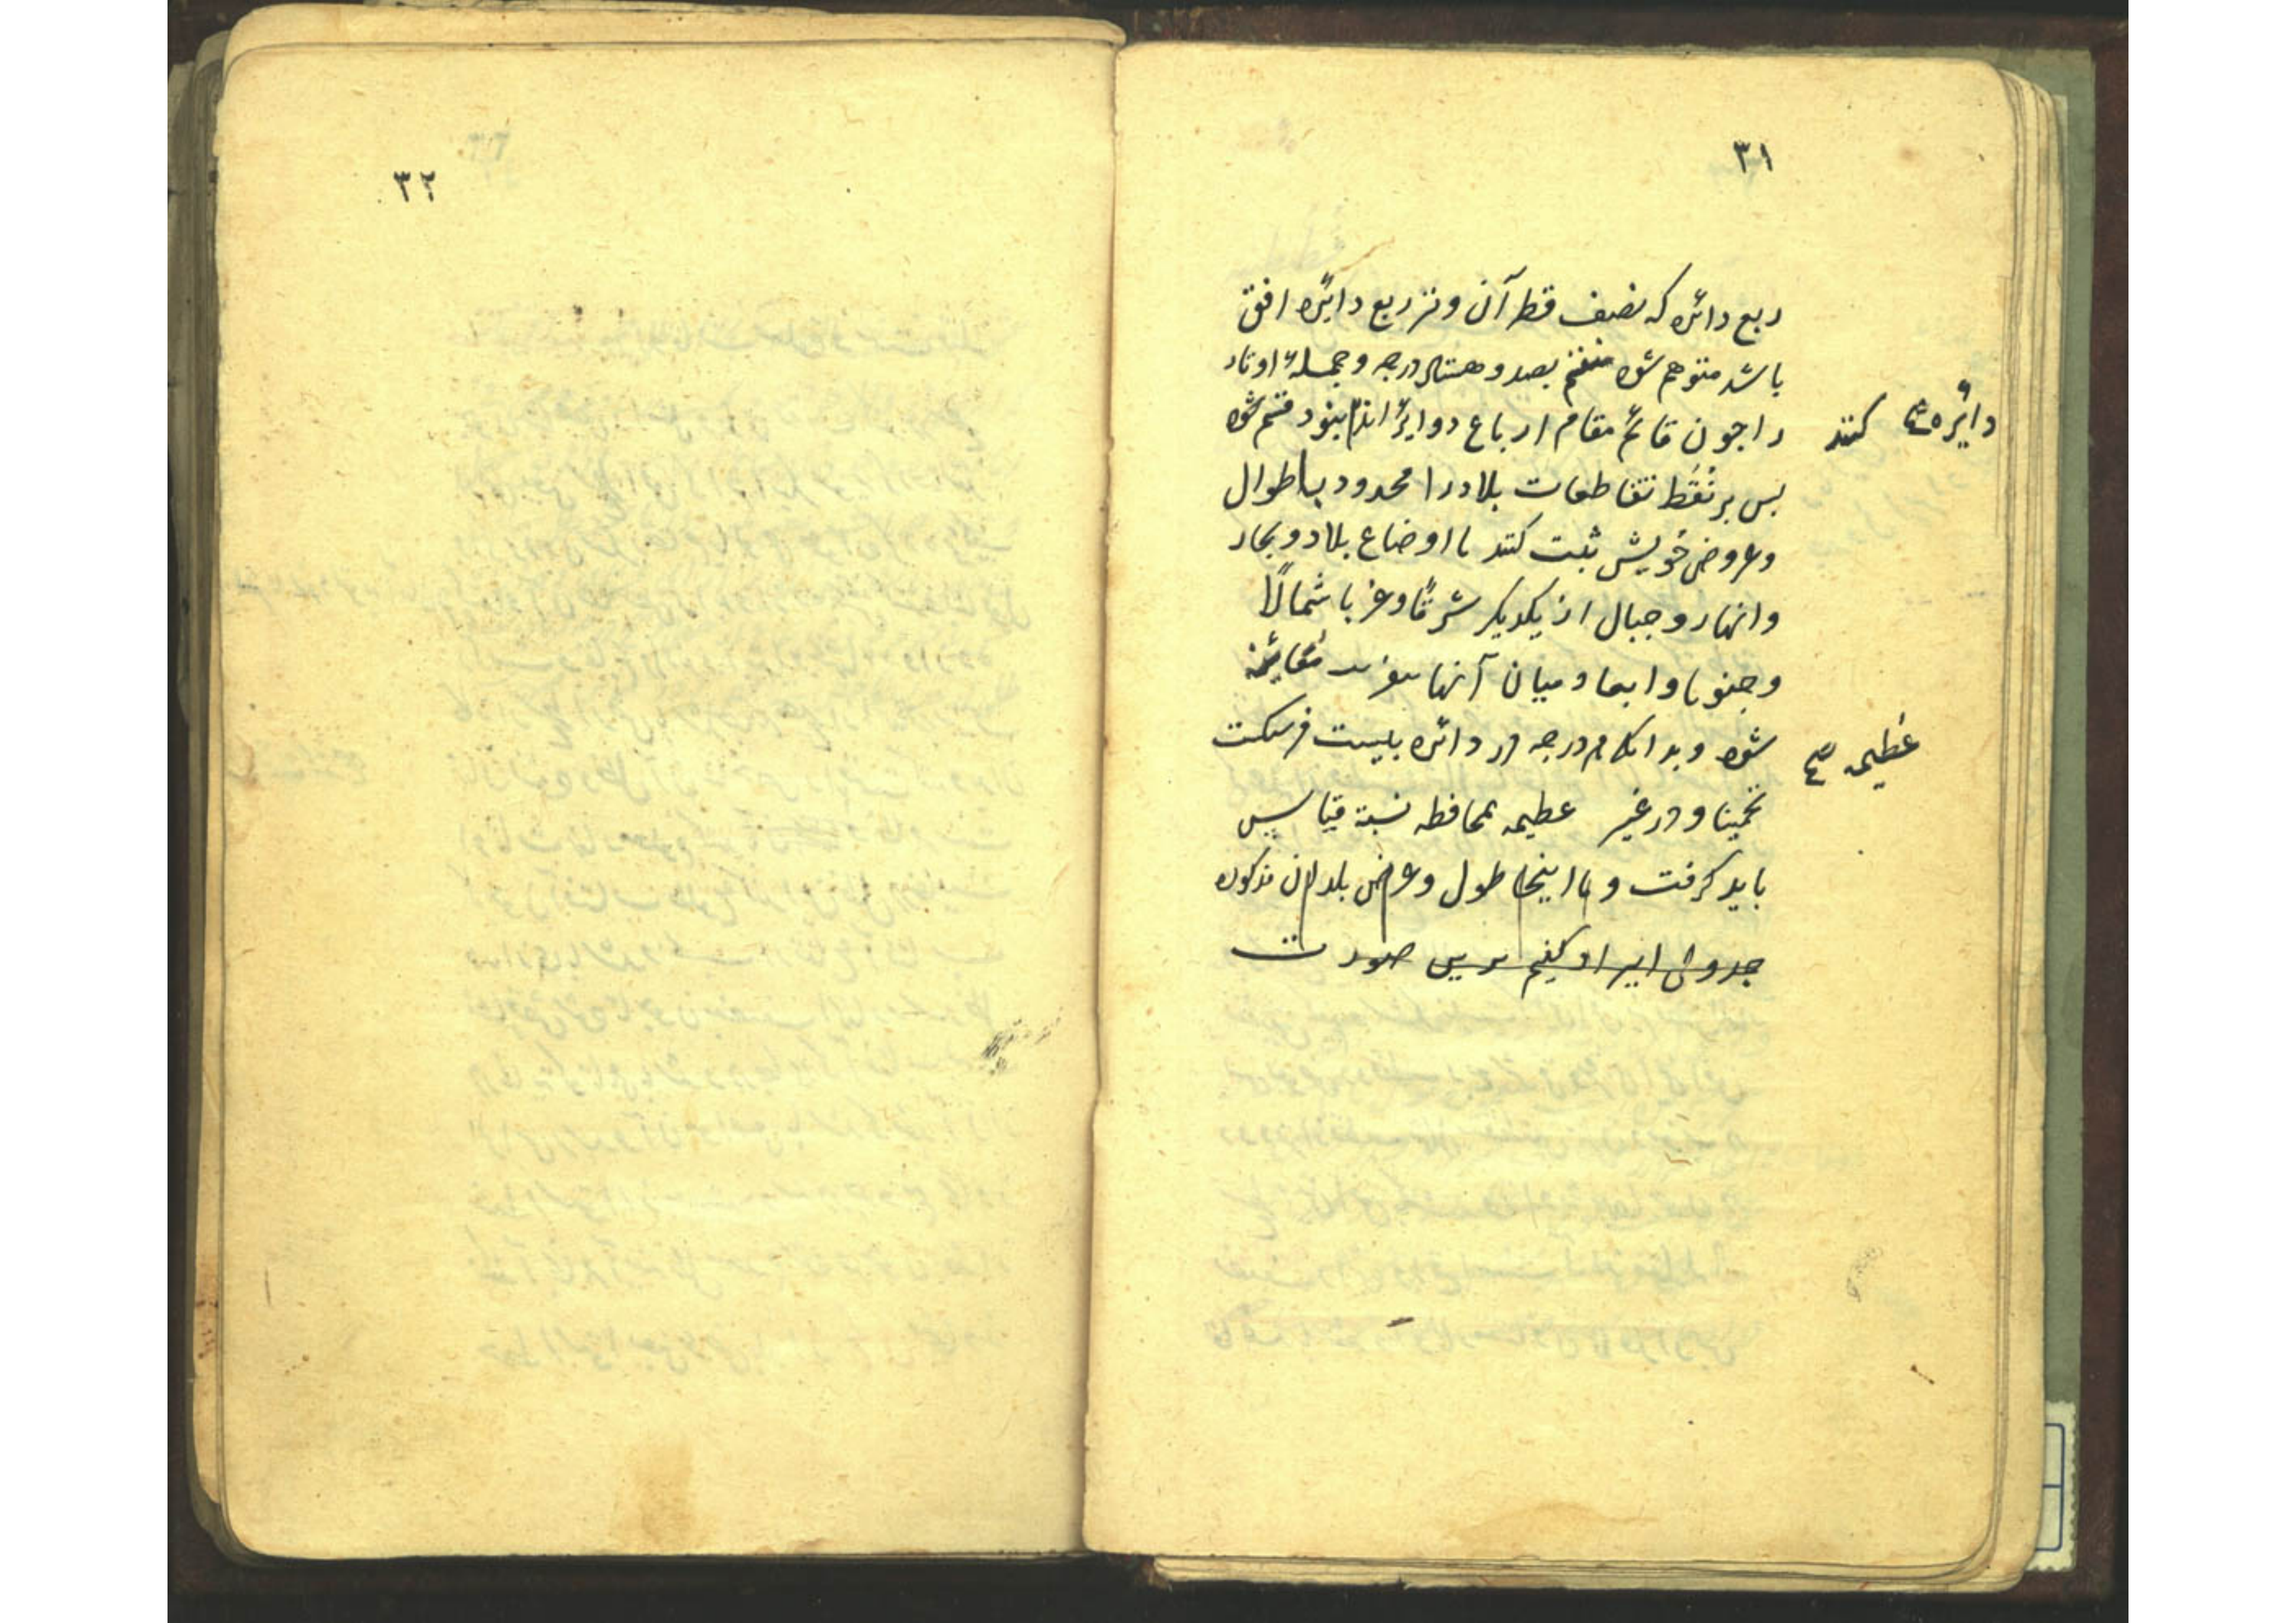 ۳۱
ربع دائره که نصف قطر آن وتر ربع دایره افق
باشد متوهم شود منقسم بصد و هشتاد درجه و جملهٔ اوتار
را چون قائم مقام ارباع دوایر اند نود قسم شود
دایره کنند
پس بر نقط تقاطعات بلاد را محدود باطوال
و عروض خویش ثبت کنند با اوضاع بلاد و بحار
و انهار و جبال از یکدیگر شرقًا و غربا شمالًا
و جنوبا و ابعاد میان آنها
شود و بدانکه درجه در دائره بیست فرسکت
عظیمه صح
تخمینا و در غیر عظیمه بمحافظه نسبة قیاس
باید کرفت و ما اینجا طول و عرض بلدان مذکوره
جدولی ایراد کنیم بدین صورت
۳۲